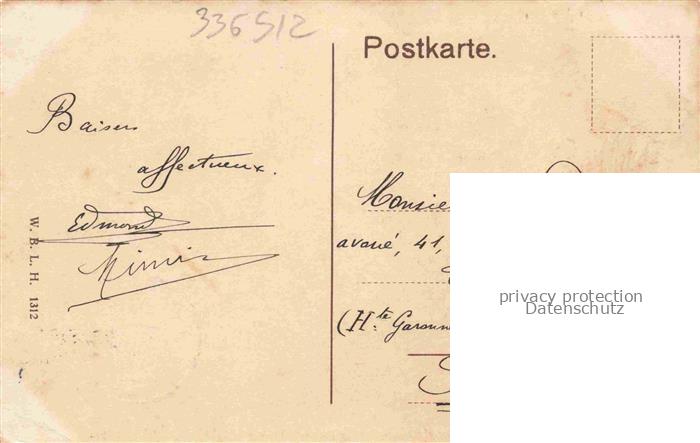 336512
Postkarte.
Baisers
affectueux.
Edmond
Mimis
W. B. L. H. 1312
Monsie
avoué, 41,
(Hte Garonn
privacy protection
Datenschutz